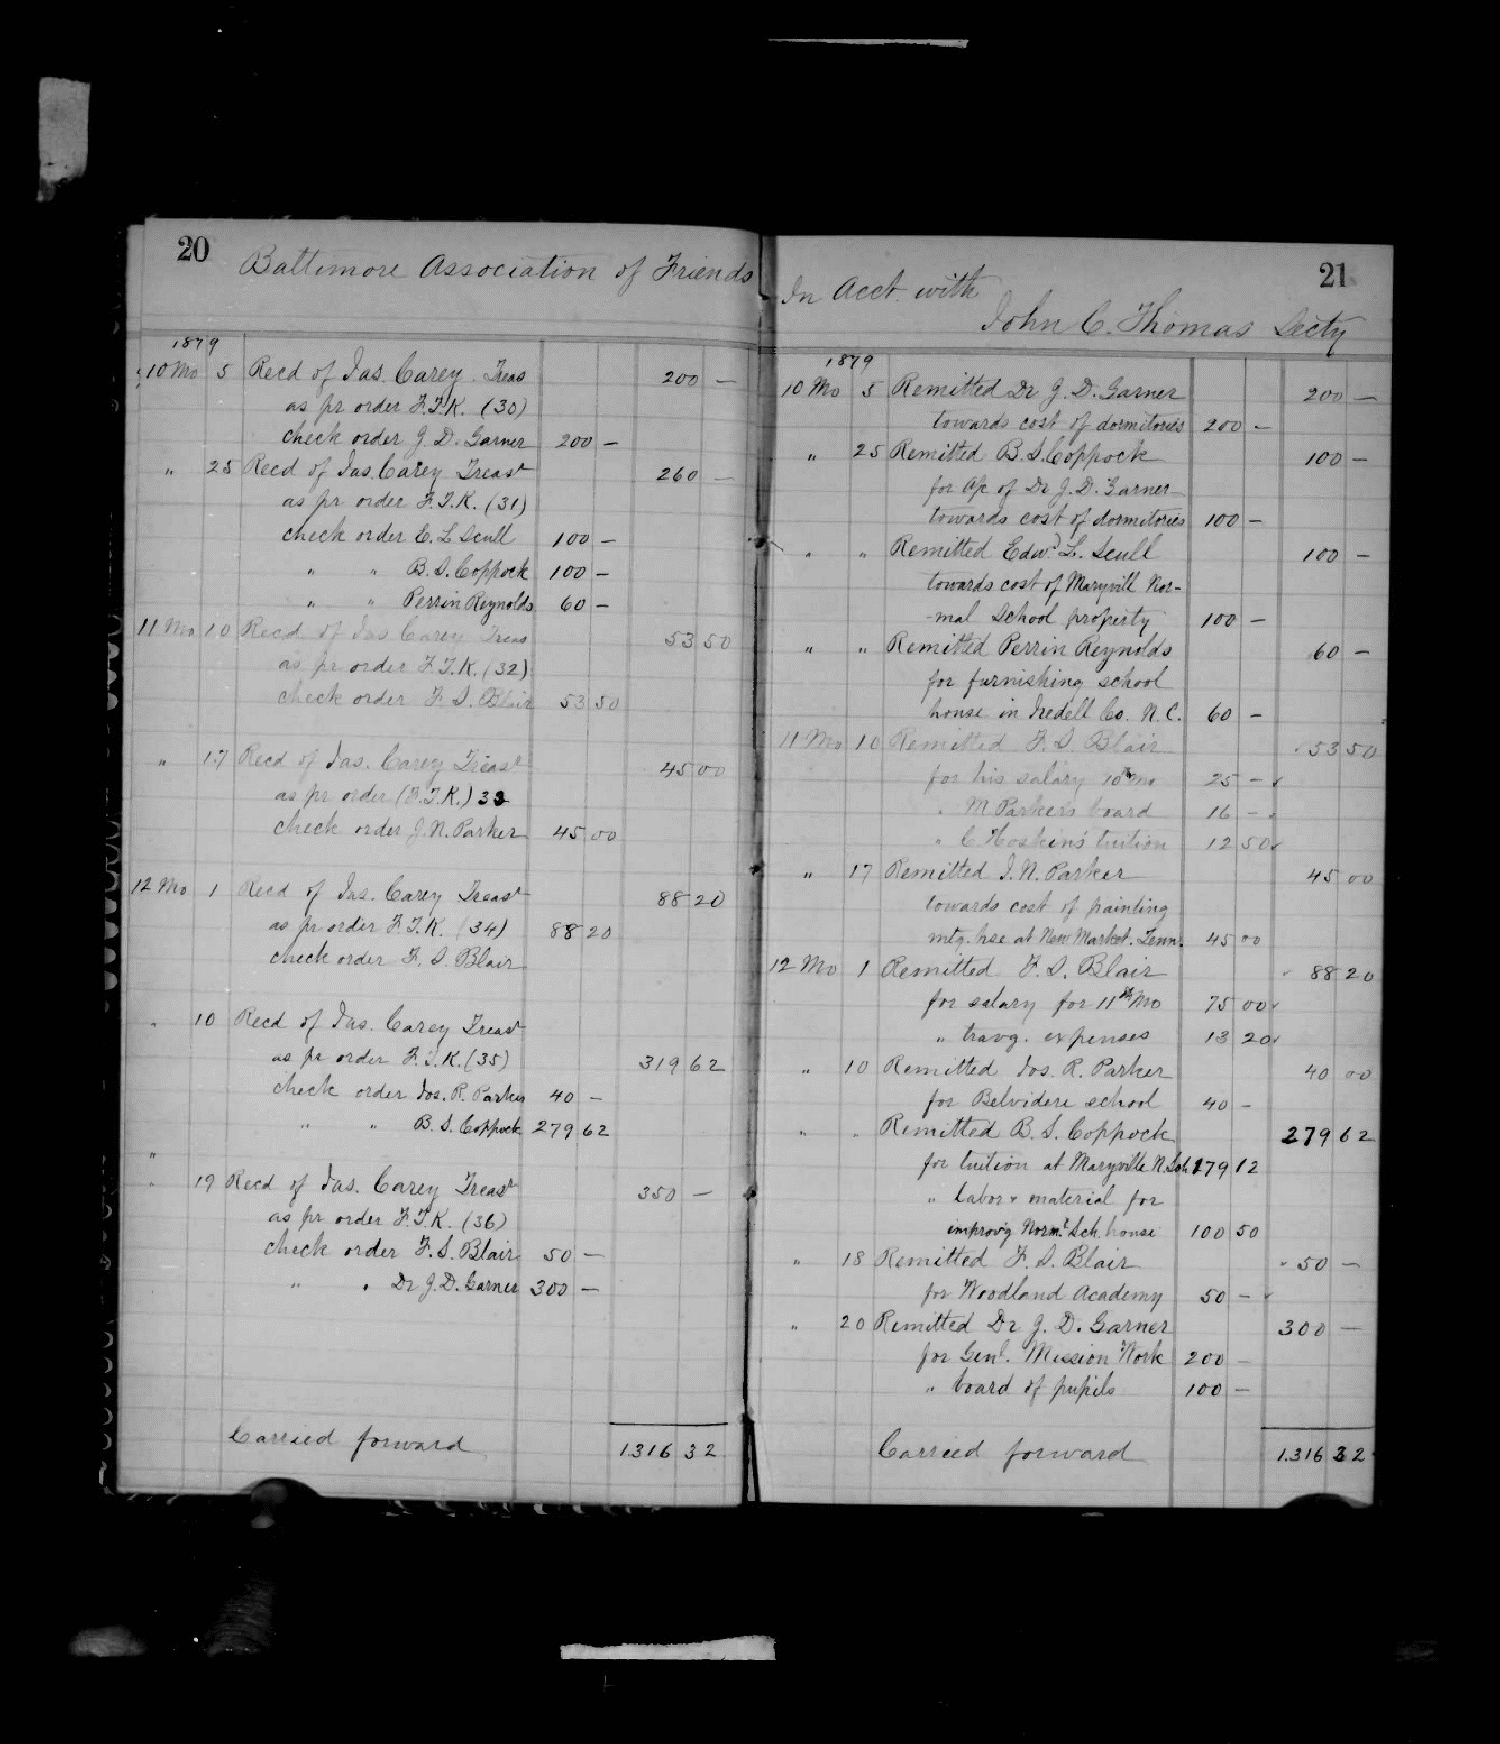 20
Baltimore Association of Friends
1879
10 Mo 5 Recd of Jas. Carey Treas 200 —
as pr order F.T.K. (30)
check order J. D. Garner 200 —
" 25 Recd of Jas. Carey Treasr 260 —
as pr order F.T.K. (31)
check order E. L Scull 100 —
" " B. S. Coppock 100 —
" " Perrin Reynolds 60 —
11 Mo 10 Recd of Jas Carey Treas 53 50
as pr order F.T.K. (32)
check order F. S. Blair 53 50
" 17 Recd of Jas. Carey Treasr 45 00
as pr order (F.T.K.) 33
check order J. N. Parker 45 00
12 Mo 1 Recd of Jas. Carey Treasr 88 20
as pr order F.T.K. (34) 88 20
check order F. S. Blair
" 10 Recd of Jas. Carey Treasr
as pr order F.T.K. (35) 319 62
check order Jos. R. Parker 40 —
" " B. S. Coppock 279 62
"
" 19 Recd of Jas. Carey Treasr 350 —
as pr order F.T.K. (36)
check order F. S. Blair 50 —
" " Dr J. D. Garner 300 —
Carried forward 1316 32
21
In Acct. with
John C. Thomas Secty
1879
10 Mo 5 Remitted Dr J. D. Garner 200 —
towards cost of dormitories 200 —
" 25 Remitted B. S. Coppock 100 —
for a/c of Dr J. D. Garner
towards cost of dormitories 100 —
" " Remitted Edwd L. Scull 100 —
towards cost of Maryvill Nor-
-mal School property 100 —
" " Remitted Perrin Reynolds 60 —
for furnishing school
house in Iredell Co. N.C. 60 —
11 Mo 10 Remitted F. S. Blair 53 50
for his salary 10th mo 25 —
" M Parker's board 16 —
" C Hoskins' tuition 12 50
" 17 Remitted J. N. Parker 45 00
towards cost of painting
mtg. hse at New Market. Tenn. 45 00
12 Mo 1 Remitted F. S. Blair 88 20
for salary for 11th Mo 75 00
" travg. expenses 13 20
" 10 Remitted Jos. R. Parker 40 00
for Belvidere school 40 —
" " Remitted B. S. Coppock 279 62
for tuition at Maryville N. Sch. 179 12
" labor & material for
improvg Norml. Sch. house 100 50
" 18 Remitted F. S. Blair 50 —
for Woodland Academy 50 —
" 20 Remitted Dr J. D. Garner 300 —
for Genl. Mission Work 200 —
" board of pupils 100 —
Carried forward 1.316 32